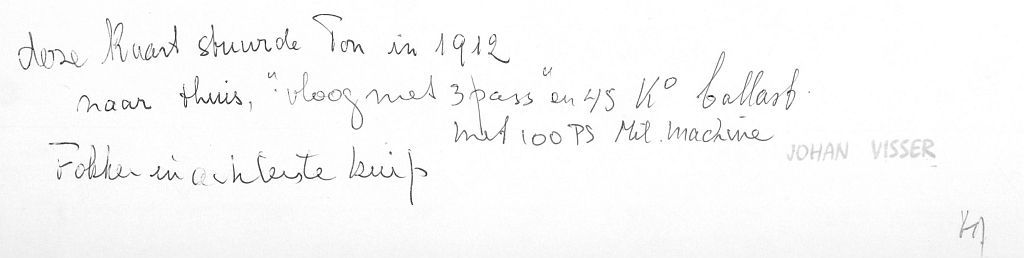 deze Kaart stuurde Ton in 1912
naar thuis, "vloog met 3 pass" en 45 Ko ballast.
met 100 PS Mil. machine
JOHAN VISSER
Fokker in achterste kuip